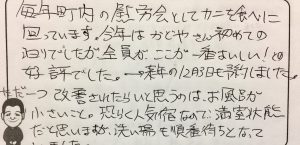 毎年町内の慰労会としてカニを食べに
回っています。今年はかどやさん初めての
泊りでしたが全員が、ここが一番おいしい!との
好評でした。→来年の12月3日も予約しました。
ただ一つ改善されたらいいと思うのは、お風呂が
小さいこと。恐らく人気宿なので満室状態
だと思いますが、洗い場も順番待ちとなって